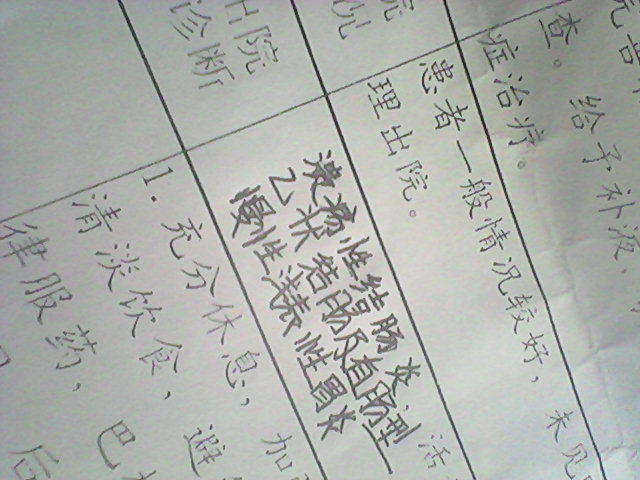 查。给予补液、
症治疗。
患者一般情况较好，未见
理出院。
出院
诊断
溃疡性结肠炎
乙状结肠及直肠型
慢性浅表性胃炎
1. 充分休息，加
清淡饮食，避
律服药，巴
后